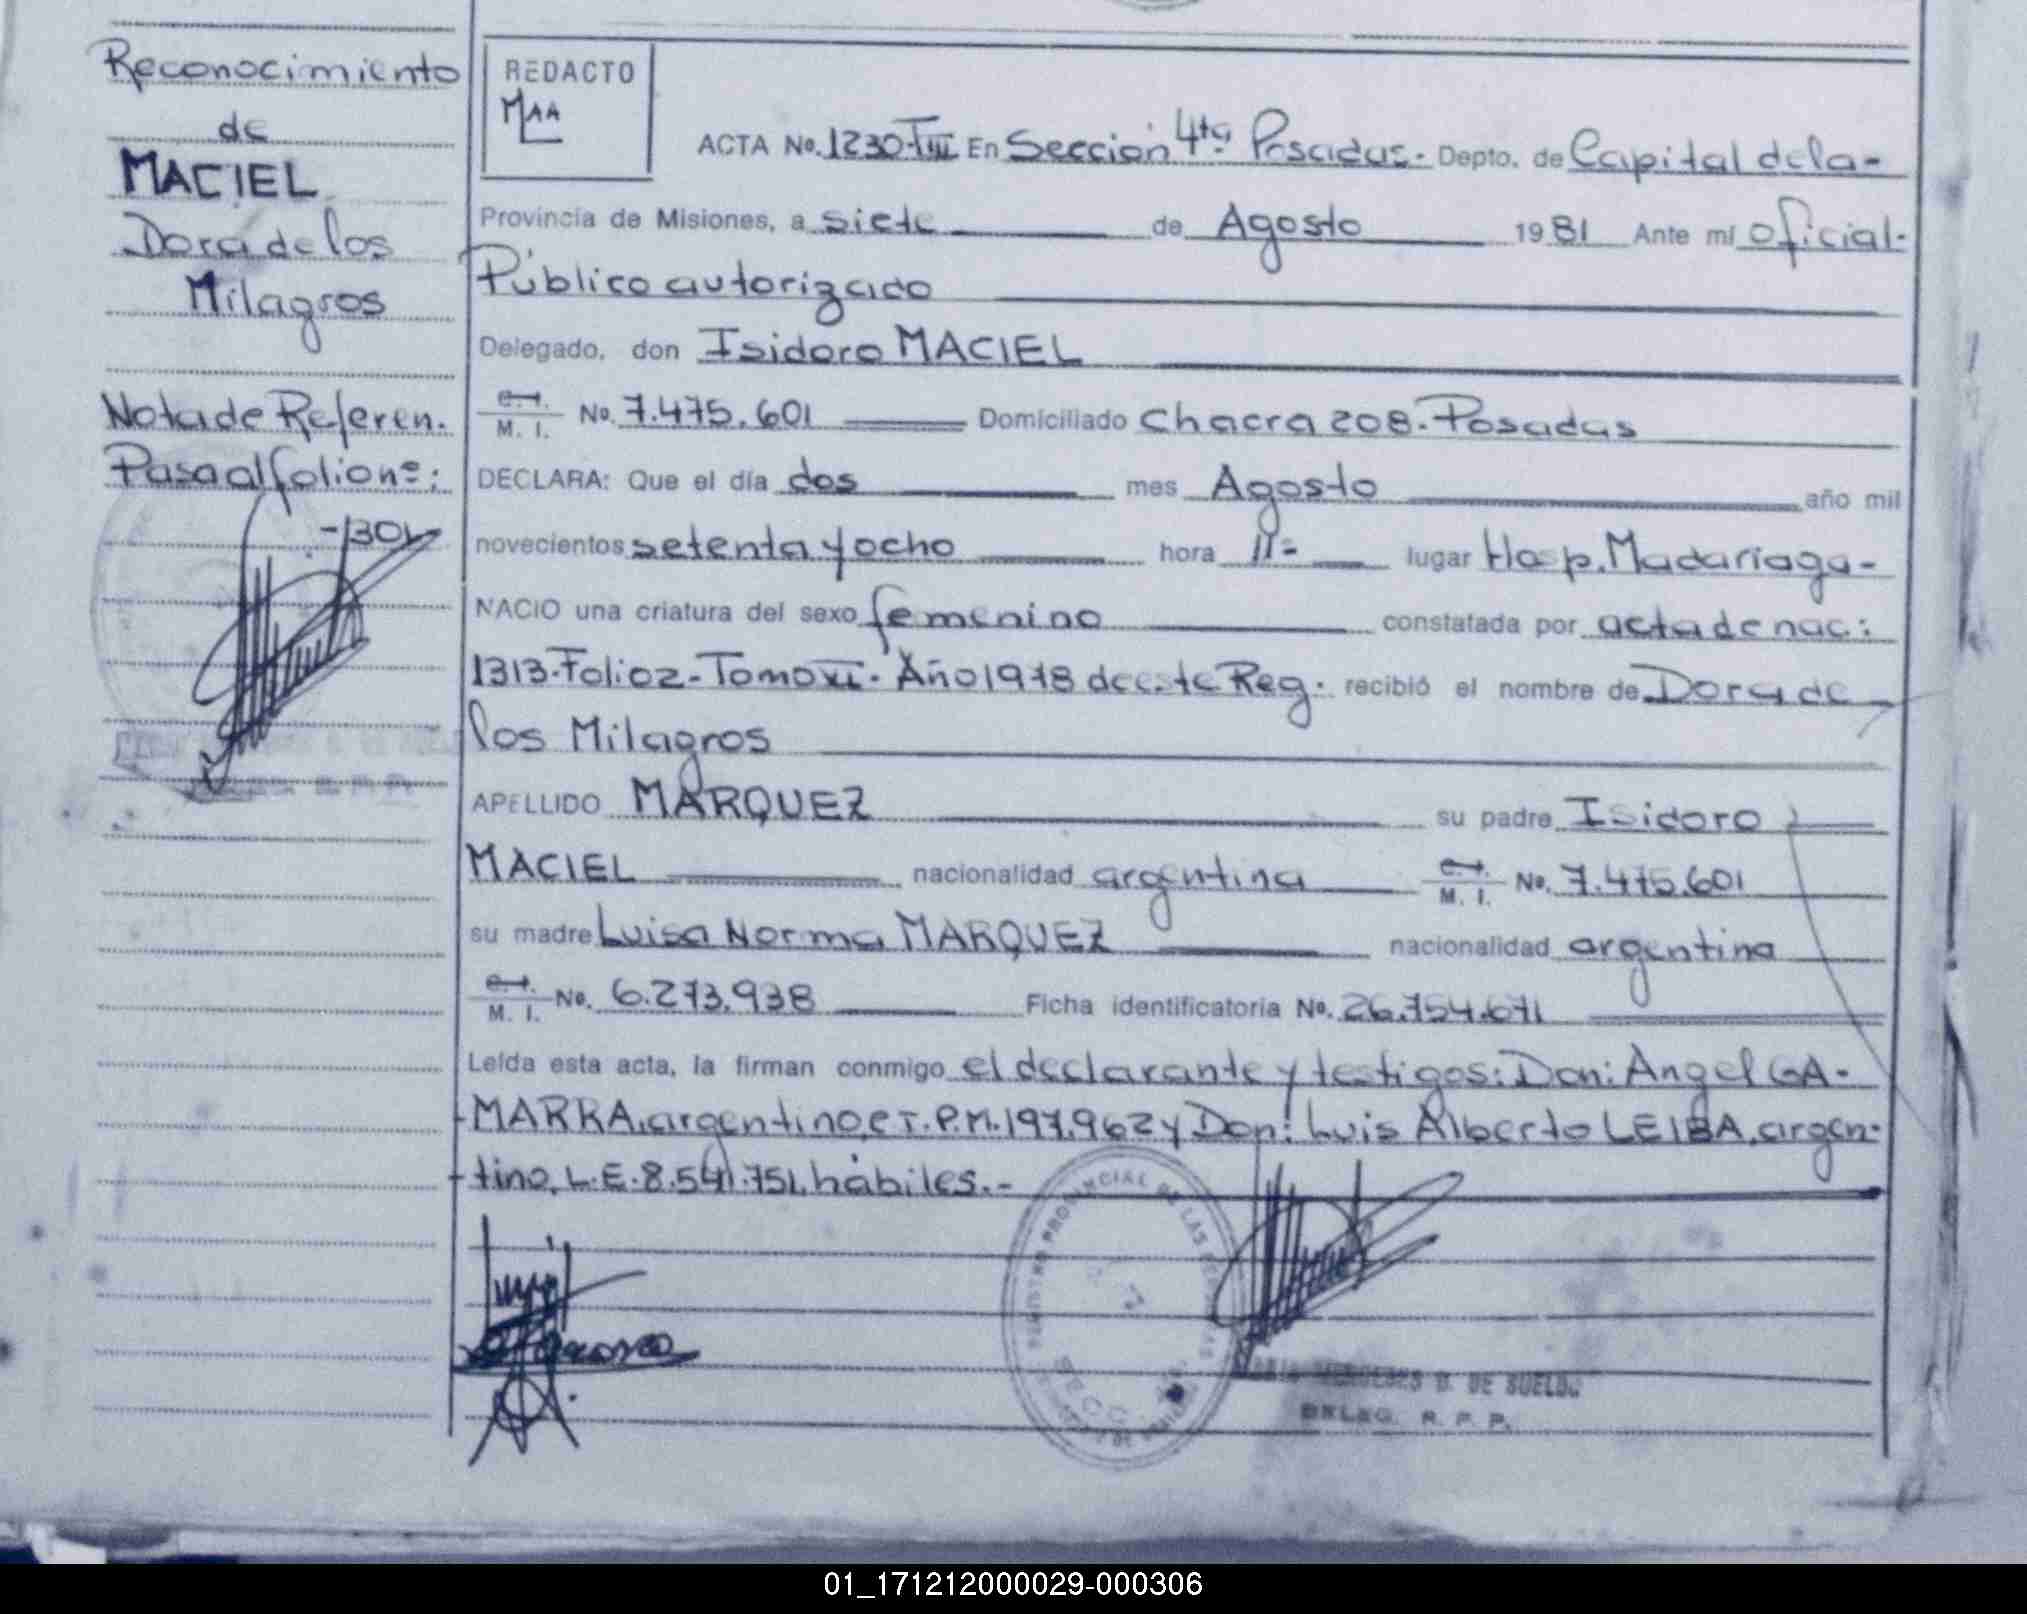 Reconocimiento
de
MACIEL
Dora de los
Milagros
Nota de Referen.
Pasa al folio nº:
-130
REDACTO
MAA
ACTA No. 1230-TIII En Sección 4ta. Posadas.- Depto. de Capital de la-
Provincia de Misiones, a siete de Agosto 1981 Ante mí oficial-
Público autorizado
Delegado, don Isidoro MACIEL
C.I.
M. I. No. 7.475.601 Domiciliado Chacra 208.-Posadas
DECLARA: Que el día dos mes Agosto año mil
novecientos setenta y ocho hora 11- lugar Hosp. Madariaga-
NACIO una criatura del sexo femenino constatada por acta de nac:
1313-Folio 2-Tomo VI- Año 1978 de este Reg. recibió el nombre de Dora de
los Milagros
APELLIDO MARQUEZ su padre Isidoro
MACIEL nacionalidad argentina C.I.
M. I. No. 7.475.601
su madre Luisa Norma MARQUEZ nacionalidad argentina
C.I.
M. I. No. 6.273.938 Ficha identificatoria No. 26.754.671
Leída esta acta, la firman conmigo el declarante y testigos: Don: Angel GA-
MARRA, argentino, C I. P.M. 197.962 y Don: Luis Alberto LEIBA, argen-
tino, L.E. 8.541.751, hábiles.-
REGISTRO PROVINCIAL DE LAS PERSONAS
SECC
MERCEDES D. DE SUELDO
DELEG. R. P. P.
01_171212000029-000306